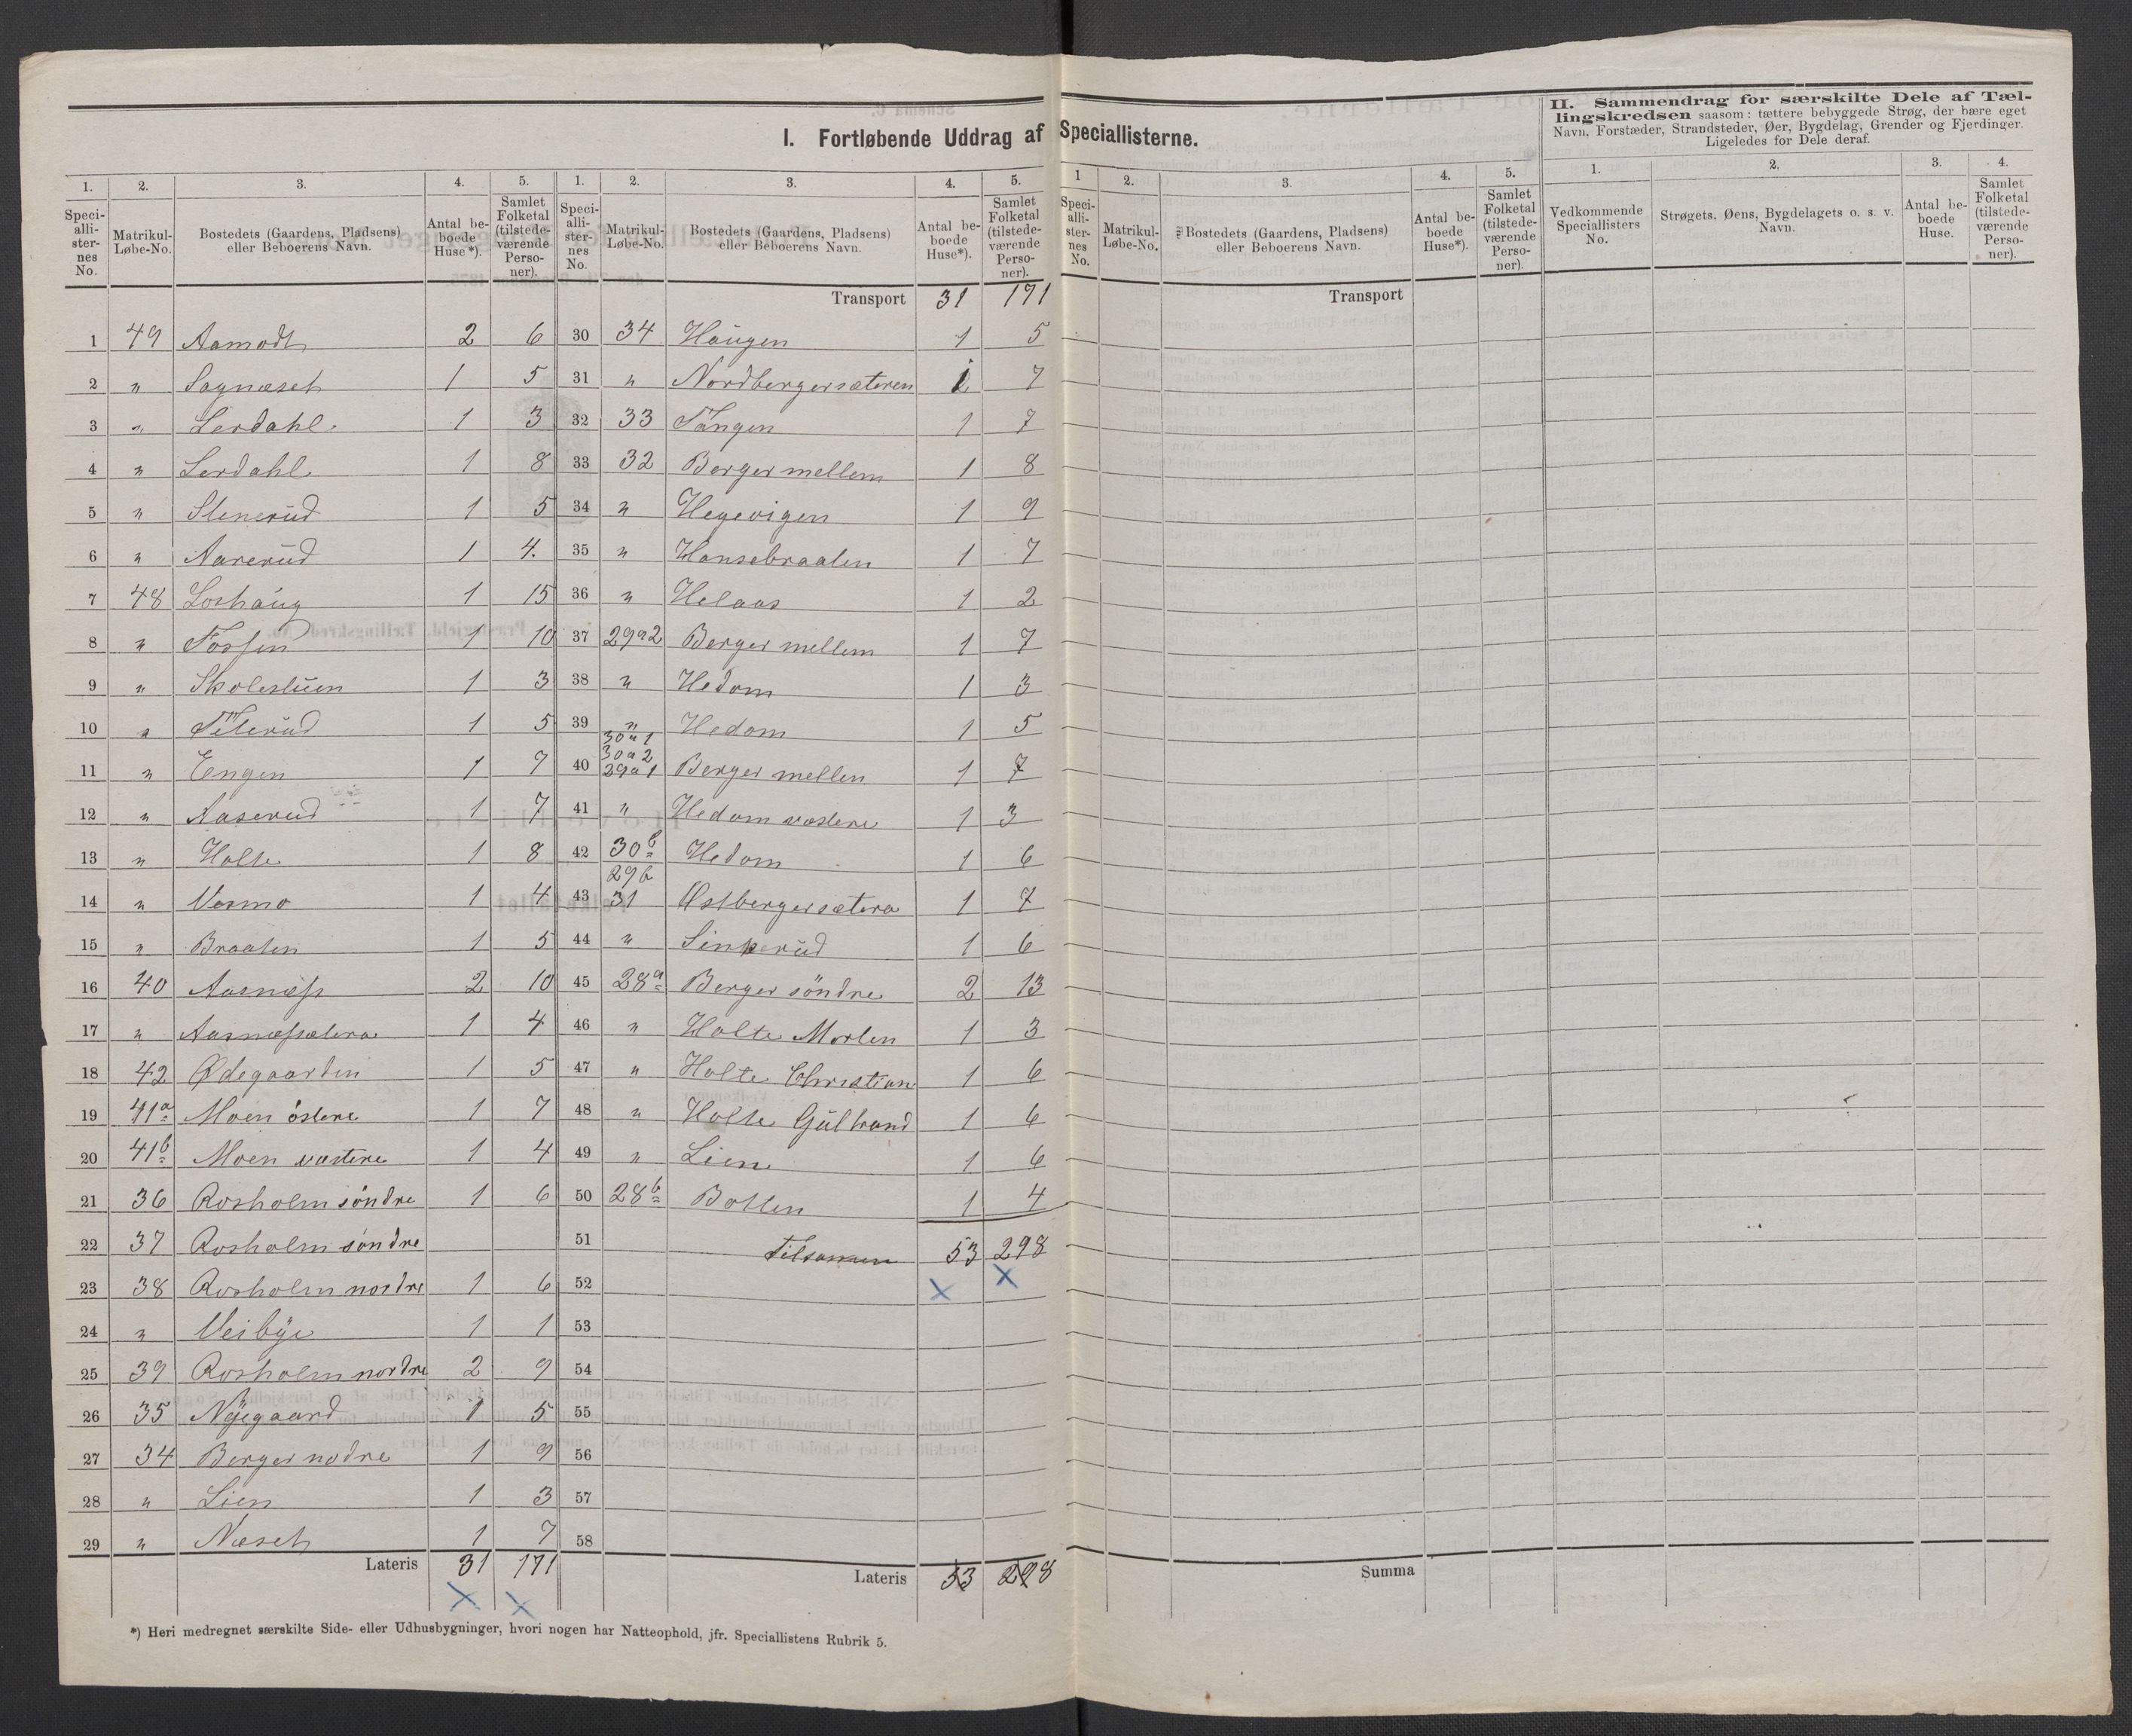 I. Fortløbende Uddrag af Speciallisterne.
1. 2. 3. 4. 5.
Speciallisternes No. Matrikul-Løbe-No. Bostedets (Gaardens, Pladsens) eller Beboerens Navn. Antal beboede Huse*). Samlet Folketal (tilstedeværende Personer).
1 49 Aamodt 2 6
2 " Sagnæset 1 5
3 " Lerdahl 1 3
4 " Lerdahl 1 8
5 " Stenerud 1 5
6 " Aarerud 1 4.
7 48 Loshaug 1 15
8 " Fossen 1 10
9 " Skoleslüen 1 3
10 " 1 5
11 " Engen 1 7
12 " Aaserud 1 7
13 " Holte 1 8
14 " Vesmo 1 4
15 " Braaten 1 5
16 40 Aasnæss 2 10
17 " Aasnæssætera 1 4
18 42 Ødegaarden 1 5
19 41a Moen östere 1 7
20 41b Moen væstere 1 4
21 36 Rosholm söndre 1 6
22 37 Rosholm söndre
23 38 Rosholm nordre 1 6
24 " Veibye 1 1
25 39 Rosholm nordre 2 9
26 35 Nyegaard 1 5
27 34 Berger nodre 1 9
28 " Lien 1 3
29 " Næset 1 7
Lateris 31 171
1. 2. 3. 4. 5.
Speciallisternes No. Matrikul-Løbe-No. Bostedets (Gaardens, Pladsens) eller Beboerens Navn. Antal beboede Huse*). Samlet Folketal (tilstedeværende Personer).
Transport 31 171
30 34 Haugen 1 5
31 " Nordbergersæteren 1 7
32 33 Tangen 1 7
33 32 Berger mellem 1 8
34 " Hegevigen 1 9
35 " Hansebraaten 1 7
36 " Helaas 1 2
37 29a2 Berger mellem 1 7
38 " Hedom 1 3
39 " Hedom 1 5
30a1
30a2
40 29a1 Berger mellen 1 7
41 " Hedom væstere 1 3
42 30b Hedom 1 6
29b
43 31 Østbergersætera 1 7
44 " Sinkerud 1 6
45 28a Berger söndre 2 13
46 " Holte Morten 1 3
47 " Holte Christian 1 6
48 " Holte Gulbrand 1 6
49 " Lien 1 6
50 28b Botten 1 4
51 Tilsammen 53 298
52
53
54
55
56
57
58
Lateris 53 298
1 2. 3. 4. 5.
Speciallisternes No. Matrikul-Løbe-No. Bostedets (Gaardens, Pladsens) eller Beboerens Navn. Antal beboede Huse*). Samlet Folketal (tilstedeværende Personer).
Transport
Summa
II. Sammendrag for særskilte Dele af Tæl-
lingskredsen saasom: tættere bebyggede Strøg, der bære eget
Navn, Forstæder, Strandsteder, Øer, Bygdelag, Grender og Fjerdinger.
Ligeledes for Dele deraf.
1. 2. 3. 4.
Vedkommende Speciallisters No. Strøgets, Øens, Bygdelagets o. s. v. Navn. Antal beboede Huse. Samlet Folketal (tilstedeværende Personer).
*) Heri medregnet særskilte Side- eller Udhusbygninger, hvori nogen har Natteophold, jfr. Speciallistens Rubrik 5.